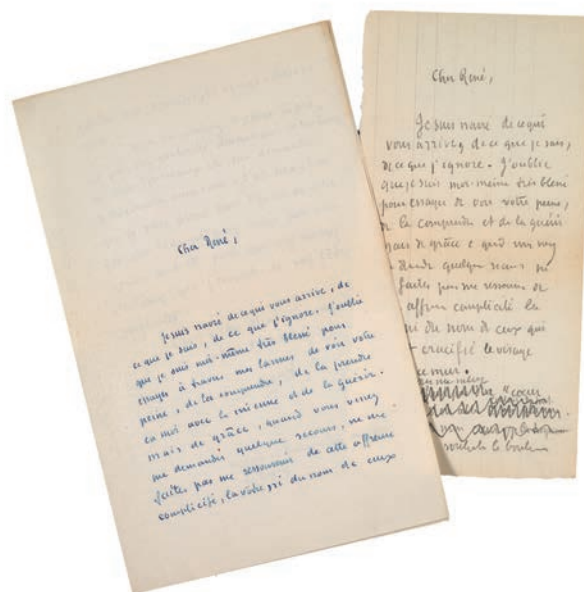 Cher René,
Je suis navré de ce qui vous arrive, de
ce que je sais, de ce que j'ignore. J'oublie
que je suis moi-même très blessé pour
essayer à travers mes larmes de voir votre
peine, de la comprendre, de la prendre
en moi avec la mienne et de la guérir.
mais de grâce, quand vous venez
me demander quelque secours, ne me
faites pas me ressouvenir de cette affreuse
complicité, la vôtre du nom de ceux
Cher René,
Je suis navré de ce qui
vous arrive, de ce que je sais,
de ce que j'ignore. J'oublie
que je suis moi-même très blessé
pour essayer de voir votre peine,
de la comprendre et de la guérir
mais de grâce quand
quelque secours ne
faites pas me
complicité la
du nom de ceux qui
crucifié le visage
ce mur.